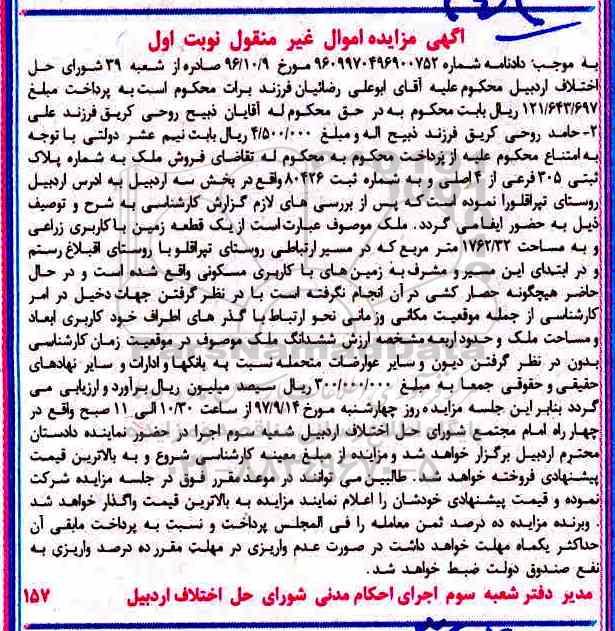 آگهی مزایده اموال غیر منقول نوبت اول
به موجب: دادنامه شماره ۹۶۰۹۹۷۰۴۹۶۹۰۰۷۵۲ مورخ ۹۶/۱۰/۹ صادره از شعبه ۳۹ شورای حل
اختلاف اردبیل محکوم علیه آقای ابوعلی رضائیان فرزند برات محکوم است به پرداخت مبلغ
۱۲۱/۶۴۳/۶۹۷ ریال بابت محکوم به در حق محکوم له آقایان ذبیح روحی کریق فرزند علی
۲-حامد روحی کریق فرزند ذبیح اله و مبلغ ۴/۵۰۰/۰۰۰ ریال بابت نیم عشر دولتی با توجه
به امتناع محکوم علیه از پرداخت محکوم به محکوم له تقاضای فروش ملک به شماره پلاک
ثبتی ۳۰۵ فرعی از ۴ اصلی و به شماره ثبت ۸۰۴۲۶ واقع در بخش سه اردبیل به ادرس اردبیل
روستای تپراقلورا نموده است که پس از بررسی های لازم گزارش کارشناسی به شرح و توصیف
ذیل به حضور ایفا می گردد. ملک موصوف عبارت است از یک قطعه زمین با کاربری زراعی
و به مساحت ۱۷۶۲/۳۲ متر مربع که در مسیر ارتباطی روستای تپراقلو با روستای اقبلاغ رستم
و در ابتدای این مسیر و مشرف به زمین های با کاربری مسکونی واقع شده است و در حال
حاضر هیچگونه حصار کشی در آن انجام نگرفته است با در نظر گرفتن جهات دخیل در امر
کارشناسی از جمله موقعیت مکانی وزمانی نحو ارتباط با گذر های اطراف خود کاربری ابعاد
و مساحت ملک و حدود اربعه مشخصه ارزش ششدانگ ملک موصوف در موقعیت زمان کارشناسی
بدون در نظر گرفتن دیون و سایر عوارضات متحمله نسبت به بانکها و ادارات و سایر نهادهای
حقیقی و حقوقی جمعا به مبلغ ۳۰۰/۰۰۰/۰۰۰ ریال سیصد میلیون ریال برآورد و ارزیابی می
گردد بنابر این جلسه مزایده روز چهارشنبه مورخ ۹۷/۹/۱۴ از ساعت ۱۰/۳۰ الی ۱۱ صبح واقع در
چهار راه امام مجتمع شورای حل اختلاف اردبیل شعبه سوم اجرا در حضور نماینده دادستان
محترم اردبیل برگزار خواهد شد و مزایده از مبلغ معینه کارشناسی شروع و به بالاترین قیمت
پیشنهادی فروخته خواهد شد. طالبین می توانند در موعد مقرر فوق در جلسه مزایده شرکت
نموده و قیمت پیشنهادی خودشان را اعلام نمایند مزایده به بالاترین قیمت واگذار خواهد شد
. وبرنده مزایده ده درصد ثمن معامله را فی المجلس پرداخت و نسبت به پرداخت مابقی آن
حداکثر یکماه مهلت خواهد داشت در صورت عدم واریزی در مهلت مقرر ده درصد واریزی به
نفع صندوق دولت ضبط خواهد شد.
مدیر دفتر شعبه سوم اجرای احکام مدنی شورای حل اختلاف اردبیل ۱۵۷